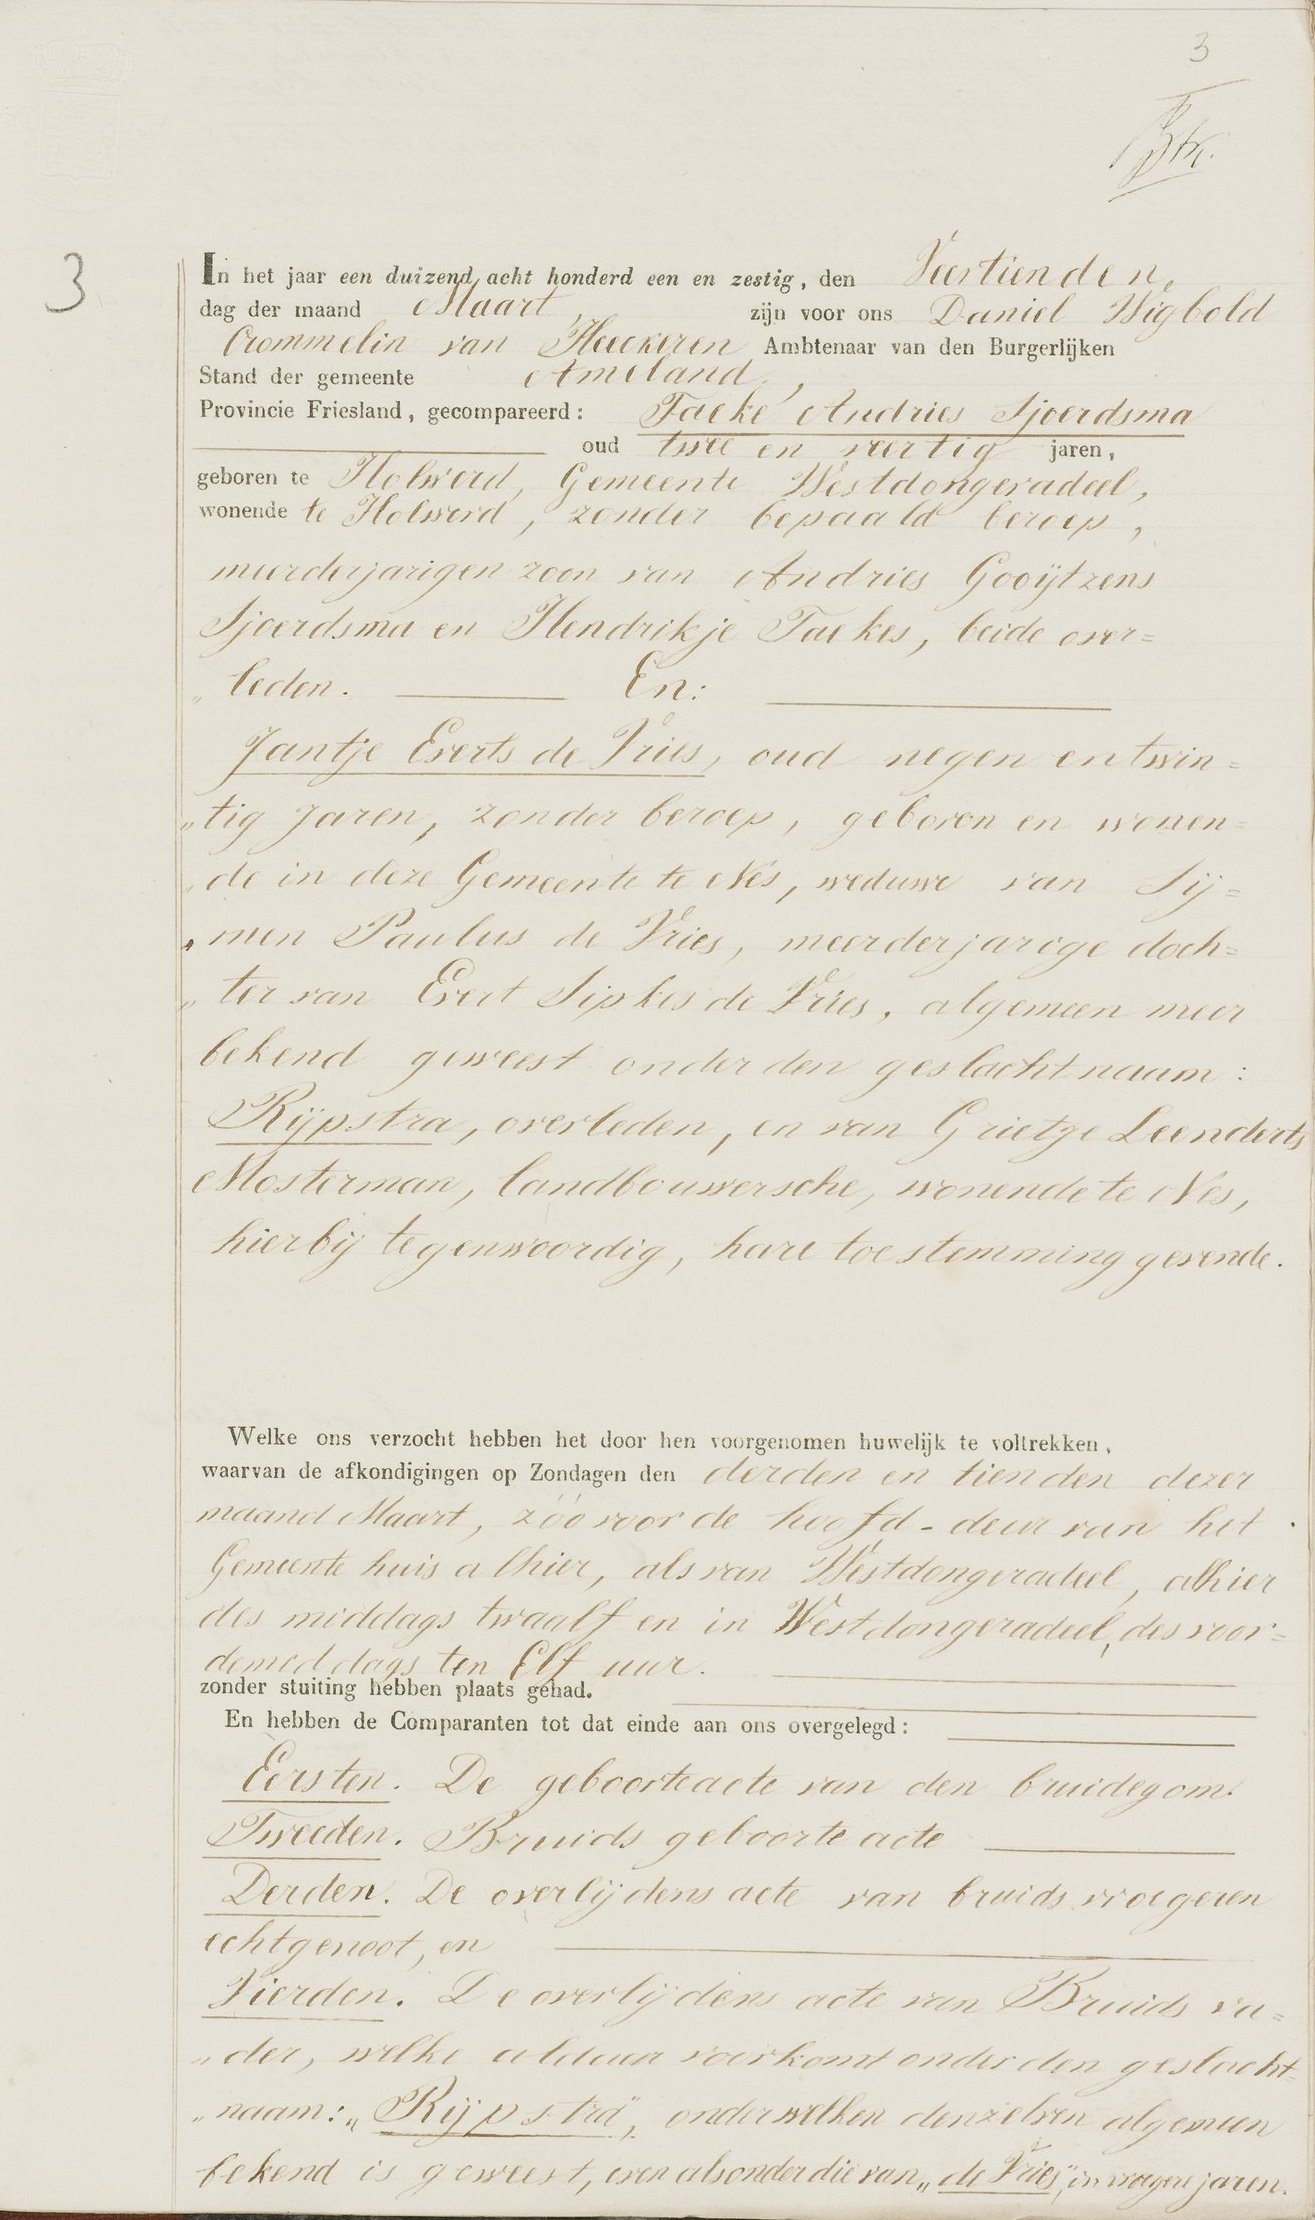 3
3
In het jaar een duizend acht honderd een en zestig, den Veertienden,
dag der maand Maart, zijn voor ons Daniel Wigbold
Crommelin van Heeckeren Ambtenaar van den Burgerlijken
Stand der gemeente Ameland,
Provincie Friesland, gecompareerd: Taeke Andries Sjoerdsma
oud twee en veertig jaren,
geboren te Holwerd, Gemeente Westdongeradeel,
wonende te Holwerd, zonder bepaald beroep,
meerderjarigen zoon van Andries Gooijtzens
Sjoerdsma en Hendrikje Taekes, beide over=
„leden. En:
Jantje Everts de Vries, oud negen en twin=
„tig Jaren, zonder beroep, geboren en wonen=
„de in deze Gemeente te Nes, weduwe van Sij=
„men Paulus de Vries, meerderjarige doch=
„ter van Evert Sipkes de Vries, algemeen meer
bekend geweest onder den geslachtnaam:
Rijpstra, overleden, en van Grietje Leenderts
Mosterman, landbouwersche, wonende te Nes,
hierbij tegenwoordig, hare toestemming gevende.
Welke ons verzocht hebben het door hen voorgenomen huwelijk te voltrekken,
waarvan de afkondigingen op Zondagen den derden en tienden dezer
maand Maart, zóó voor de hoofd-deur van het
Gemeente huis alhier, als van Westdongeradeel, alhier
des middags twaalf en in Westdongeradeel, des voor=
demiddags ten Elf uur.
zonder stuiting hebben plaats gehad.
En hebben de Comparanten tot dat einde aan ons overgelegd:
Eersten. De geboorteacte van den bruidegom.
Tweeden. Bruids geboorte acte
Derden. De overlijdens acte van bruids vroegeren
echtgenoot, en
Vierden. De overlijdens acte van Bruids va=
„der, welke aldaar voorkomt onder den geslacht=
„naam: „Rijpstra", onder welken denzelven algemeen
bekend is geweest, even als onder die van „de Vries", in vroegere jaren.